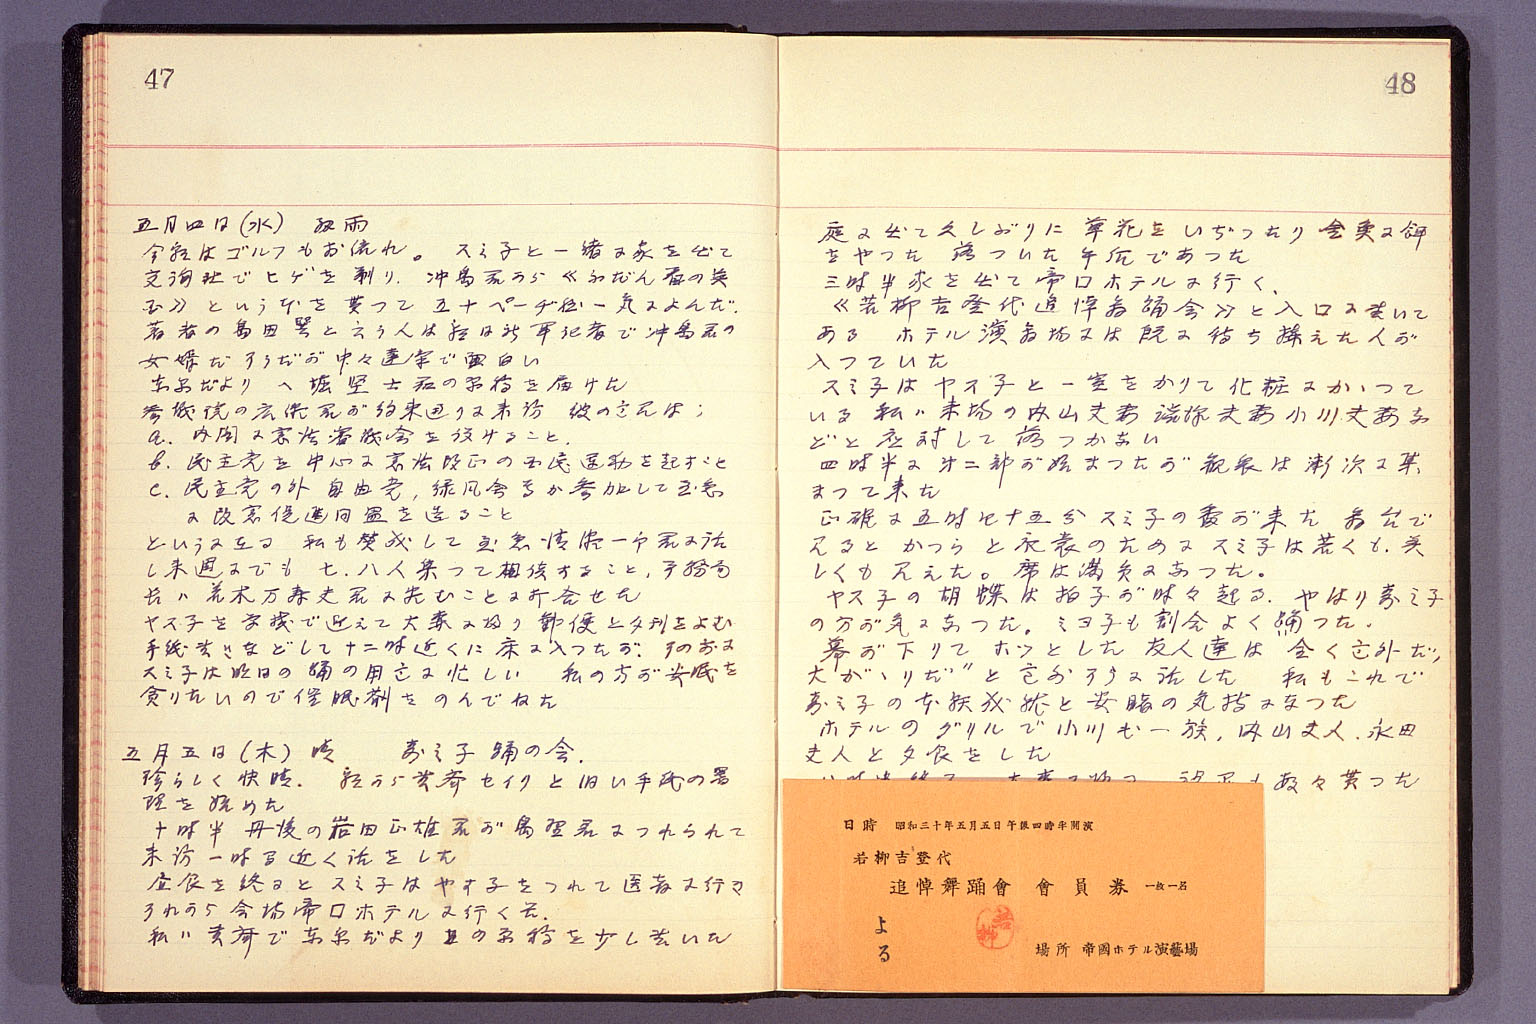 47
五月四日(水) 雨
今朝はゴルフもお流れ。 スミ子と一緒に家を出て
交詢社でヒゲを剃り、沖島君から《ふだん着の英
国》という本を貰つて五十ページ位一気によんだ.
著者の島田巽と云う人は朝日新聞記者で沖島君の
女婿だそうだが中々達筆で面白い
東京だより へ堀堅士君の原稿を届けた
参議院の広瀬君が約束通りに来訪 彼の意見は;
a. 内閣に憲法審議会を設けること.
b. 民主党を中心に憲法改正の国民運動を起すこと
c. 民主党の外 自由党, 緑風会等が参加して至急
に改憲促進同盟を造ること
というに在る 私も賛成して至急 清瀬一郎君に話
し来週にでも 七、八人集つて相談すること, 事務局
長ハ荒木万寿夫君に頼むことに打合せた
ヤス子を学校で迎えて大森に帰り郵便と夕刊をよむ
手紙書きなどして十二時近くに床に入つたが.
スミ子は明日の踊の用意に忙しい 私の方が安眠を
貪りたいので催眠剤をのんでねた
五月五日(木) 晴 寿ミ子 踊の会.
珍らしく快晴. 朝から書斎セイリと旧い手紙の署
理を始めた
十時半 丹後の岩田正雄君が島君につれられて
来訪 一時間近く話をした
昼食を終るとスミ子はヤス子をつれて医者に行き
それから会場帝国ホテルに行く.
私ハ書斎で東京だよりの原稿を少し書いた
48
庭に出て久しぶりに草花をいぢつたり金魚に餌
をやつた 落ついた午前であつた
三時半家を出て帝国ホテルに行く.
《若柳吉登代追悼舞踊会》と入口に書いて
ある ホテル演舞場には既に待ち構えた人が
入つていた
スミ子はヤス子と一室をかりて化粧にかゝつて
いる 私ハ来場の内山夫妻 夫妻小川夫妻な
どと応対して落つかない
四時半に第二部が始まつたが観衆は漸次に集
まつて来た
正確に五時七十五分スミ子の番が来た 舞台で
見るとかつらと衣裳のためにスミ子は若くも、美
しくも見えた。席は満員になつた。
ヤス子の胡蝶は拍子が時々起る. やはり寿ミ子
の方が気になつた。ミヨ子も割合よく踊つた.
幕が下りてホツとした 友人達は 全く意外だ,
大がゝりだ” と意外そうに話した 私もこれで
寿ミ子の本領成就と安睹の気持になつた
ホテルのグリルで小川も一族, 内山夫人、永田
夫人と夕食をした
日時 昭和三十年五月五日午後四時半開演
若柳吉登代
追悼舞踊會 會員券 一枚一名
よる
若柳
場所 帝國ホテル演藝場